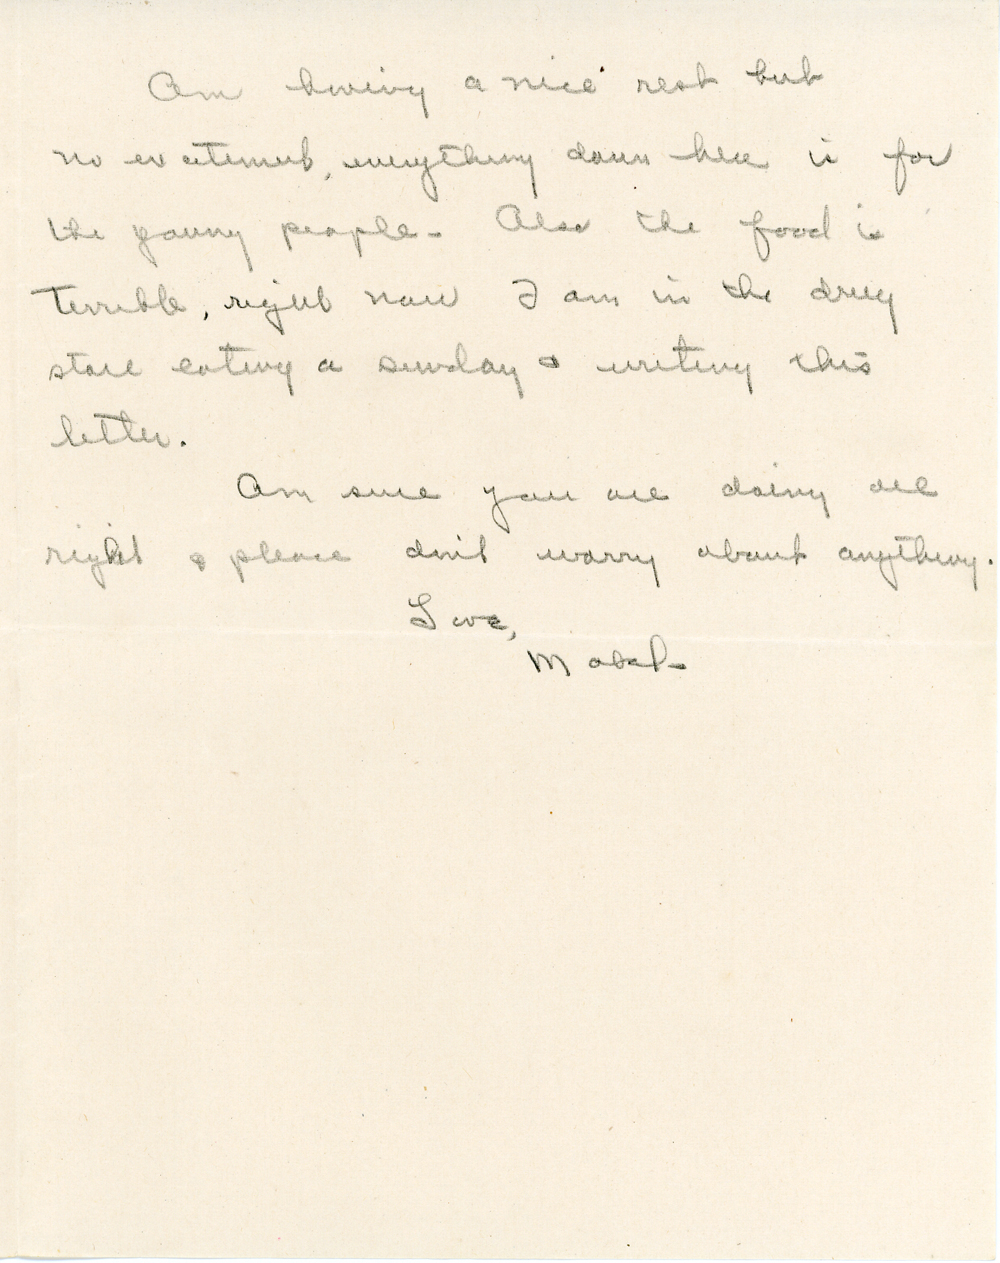 Am having a nice rest but
no excitement, everything down here is for
the young people. Also the food is
terrible, right now I am in the drug
store eating a sunday & writing this
letter.
Am sure you are doing all
right & please don't worry about anything.
Love,
Mabel.